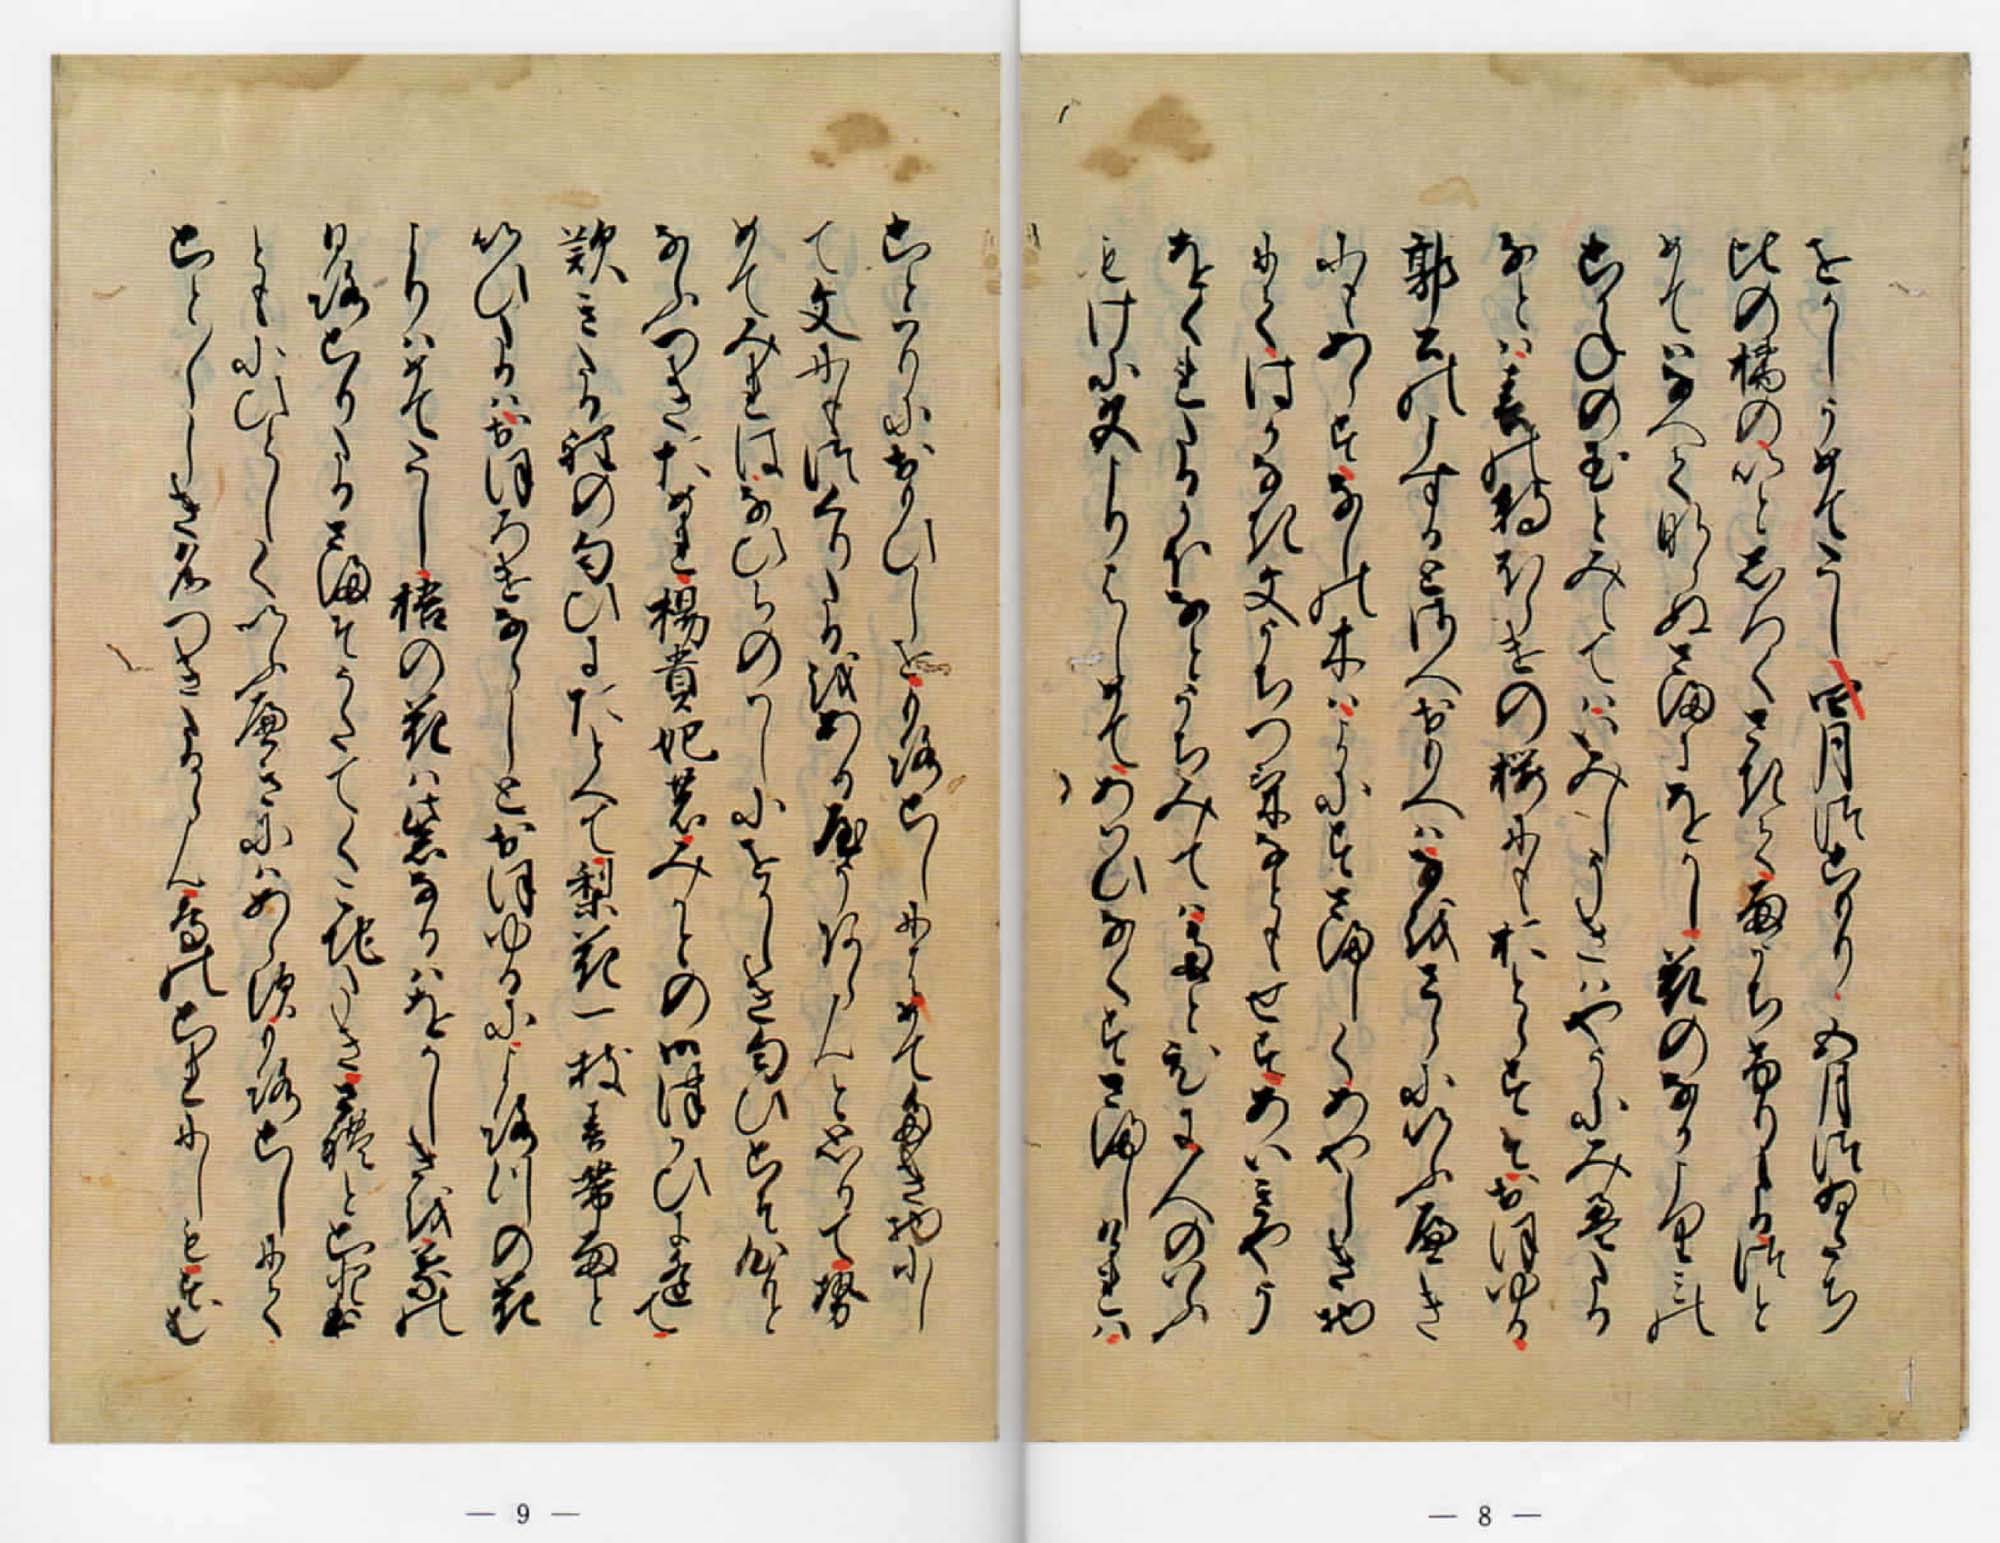 をかしうめてたし四月つこもり五月ついたち
比の橘のいとしろくさきたるに雨うちふりたるつと
めてはなへてならぬさまにをかし花のなかよりこの
こかねの玉とみえてはいみしうきはやかにみえたる
なとは春の朝ほらけの桜にもおとらすそおほゆる
郭公のよすかとさへおもへはなをさらにいふへき
にもあらすなしの木はよにすさましくあやしき物
にてはかなき文うちつけなともせすあいきやう
をくれたるかほなとうちみてはたとひに人のいふ
もけに色よりはしめてあはひなくすさましけれは
ことはりにおもひしをもろこしにはめてたき物にし
て文にもつくりたるをあるやうあらんと思ひて勢
めてみれははなひらのはしにをかしき匂ひこそ心もと
なふつきためれ楊貴妃みかとの御つかひに逢て
歎きたる程の匂ひにたとへて梨花一枝春帯雨と
いひたるはおほろけならしとおほゆるによろつの花
よりはめてたし桐の花は紫なるはをかしきを葉の
日ろこりたるさまそうたてくこちたきされとこと木
ともにひとしくいふへきにはあらすもろこしにてこ
ことことしき名つきたるらん鳥のこれにしもすむ